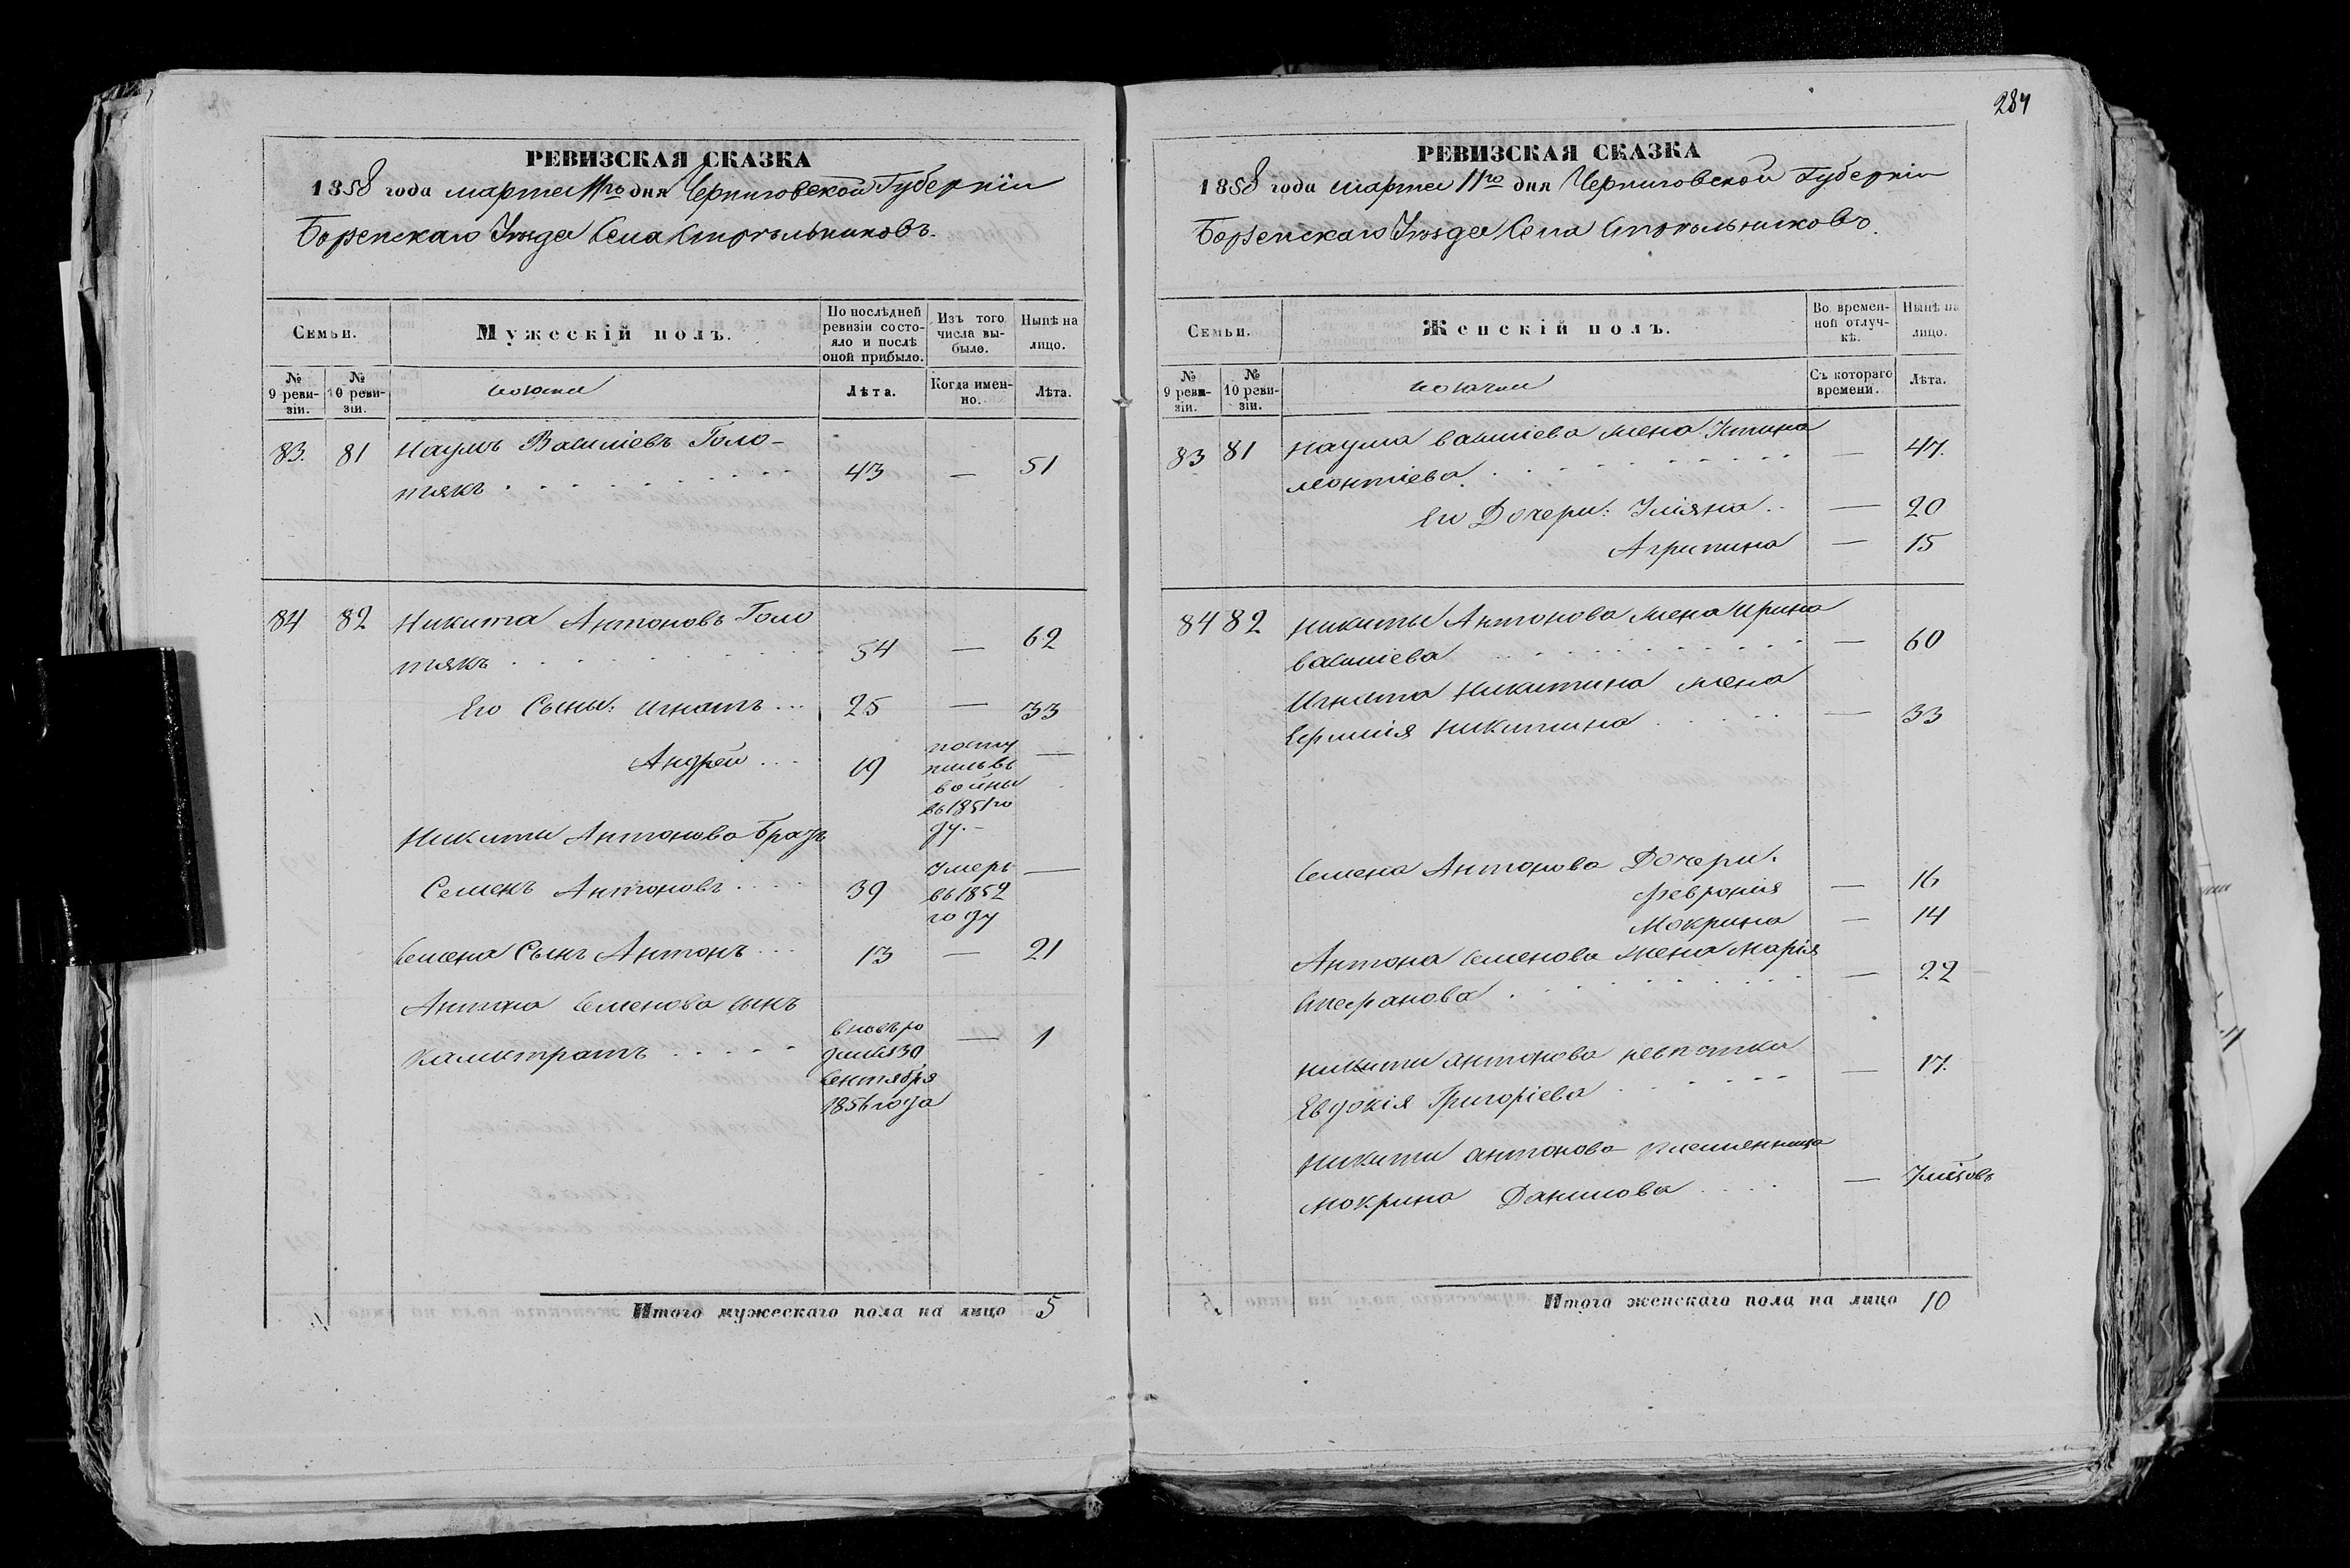 284
РЕВИЗСКАЯ СКАЗКА
1858 года марта 11го дня Черниговской Губернiи
Борзенскаго Уѣзда Села Стрѣльниковъ.
Семьи.
Мужескій полъ.
По послѣдней ревизіи состояло и послѣ оной прибыло.
Изъ того числа выбыло.
Нынѣ на лицо.
№ 9 ревизіи.
№ 10 ревизіи.
Лѣта.
Когда именно.
Лѣта.
83. 81 Наумъ Василіевъ Голо-
тякъ 43 — 51
84 82 Никита Антоновъ Голо
тякъ 54 — 62
Его Сыны: Игнатъ 25 — 33
Андрей 19 посту
пилъ въ
войны
въ 1851 го
ду. —
Никиты Антонова братъ
Семенъ Антоновъ 39 Умеръ
въ 1852
году —
Семена Сынъ Антонъ 13 — 21
Антона Семенова сынъ
Калистратъ вновь ро
дился 30
Сентября
1856 года — 1
Итого мужескаго пола на лицо 5
РЕВИЗСКАЯ СКАЗКА
1858 года марта 11го дня Черниговской Губерніи
Борзенскаго Уѣзда Села Стрѣльниковъ.
Семьи.
Женскій полъ.
Во временной отлучкѣ.
Нынѣ на лицо.
№ 9 ревизіи.
№ 10 ревизіи.
Съ котораго времени.
Лѣта.
83 81 Наума Василіева жена Устина
Леонтіева — 47.
Его Дочери: Уліяна — 20
Агрипина — 15
84 82 Никиты Антонова жена Ирина
Василіева — 60
Игната Никитина жена
Никитина — 33
Семена Антонова Дочери:
Февронія — 16
Мокрина — 14
Антона Семенова жена Марія
Стефанова — 22
Никиты Антонова невѣстка
Евдокія Григоріева — 17.
Никиты Антонова племянница
Мокрина Данилова —
Итого женскаго пола на лицо 10